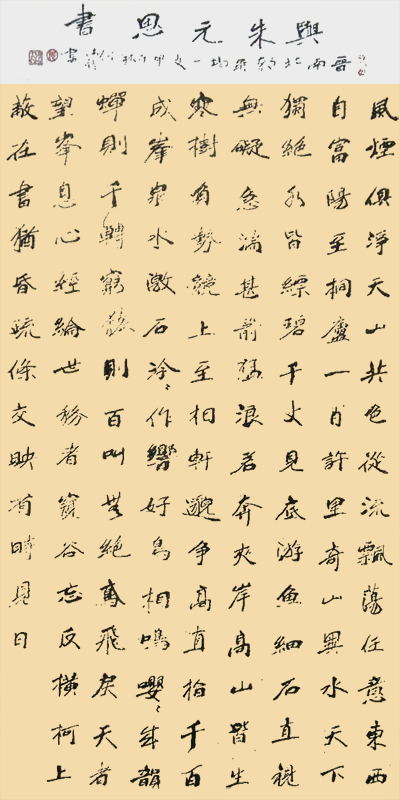 與朱元思書
風煙俱淨天山共色從流飄蕩任意東西
自富陽至桐廬一百許里奇山異水天下
獨絕水皆縹碧千丈見底游魚細石直視
無礙急湍甚箭猛浪若奔夾岸高山皆生
寒樹負勢競上互相軒邈爭高直指千百
成峯泉水激石泠々作響好鳥相鳴嚶々成韻
蟬則千轉窮猿則百叫無絕鳶飛戾天者
望峯息心經綸世務者窺谷忘反橫柯上
蔽在晝猶昏疏條交映有時見日